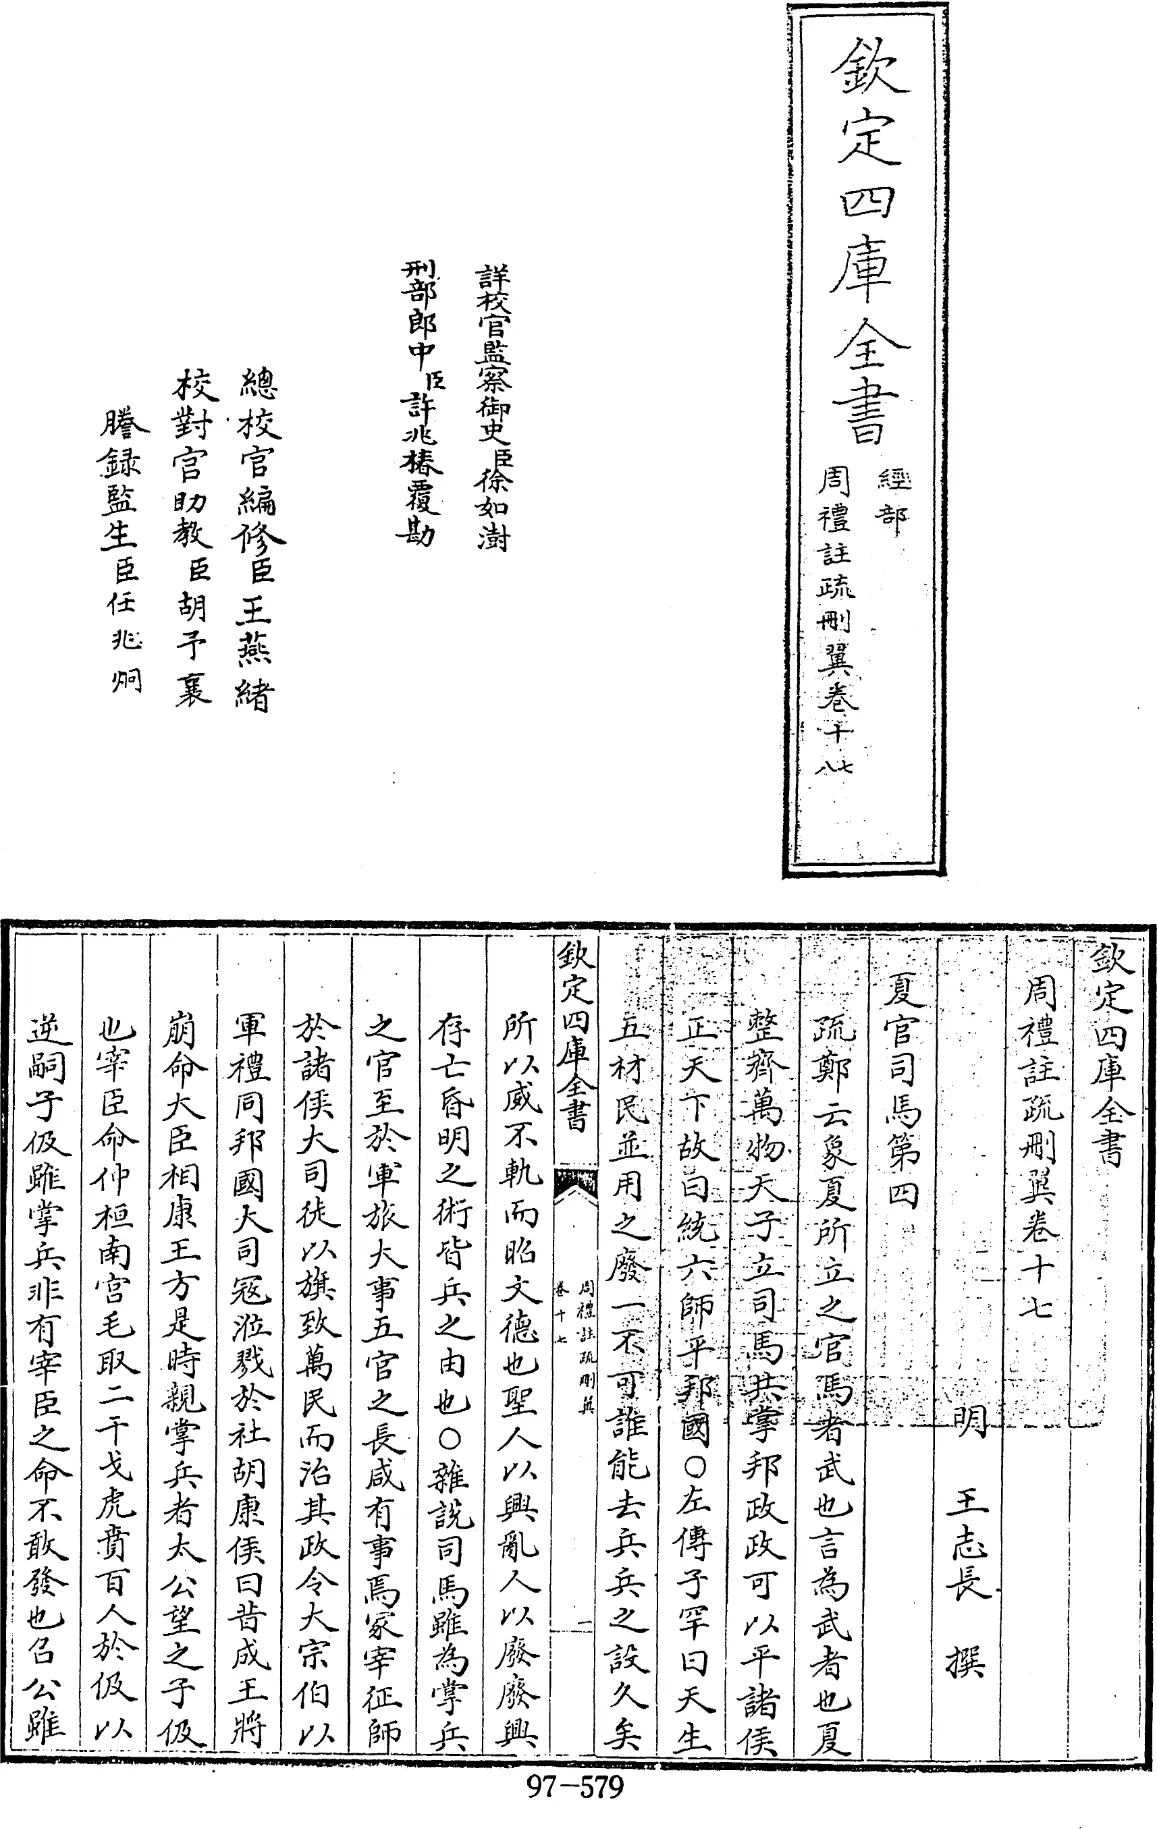 欽定四庫全書
經部
周禮註疏刪翼卷十七八
詳校官監察御史臣徐如澍
刑部郎中臣許兆椿覆勘
總校官編修臣王燕緒
校對官助教臣胡予襄
謄錄監生臣任兆炯
欽定四庫全書
周禮註疏刪翼卷十七
明 王志長 撰
夏官司馬第四
疏鄭云象夏所立之官馬者武也言為武者也夏
整齊萬物天子立司馬共掌邦政政可以平諸侯
正天下故曰統六師平邦國○左傳子罕曰天生
五材民並用之廢一不可誰能去兵兵之設久矣
欽定四庫全書
周禮註疏刪翼
卷十七
一
所以威不軌而昭文德也聖人以興亂人以廢廢興
存亡昏明之術皆兵之由也○雜說司馬雖為掌兵
之官至於軍旅大事五官之長咸有事焉冢宰征師
於諸侯大司徒以旗致萬民而治其政令大宗伯以
軍禮同邦國大司寇涖戮於社胡康侯曰昔成王將
崩命大臣相康王方是時親掌兵者太公望之子伋
也宰臣命仲桓南宮毛取二干戈虎賁百人於伋以
逆嗣子伋雖掌兵非有宰臣之命不敢發也召公雖
97-579